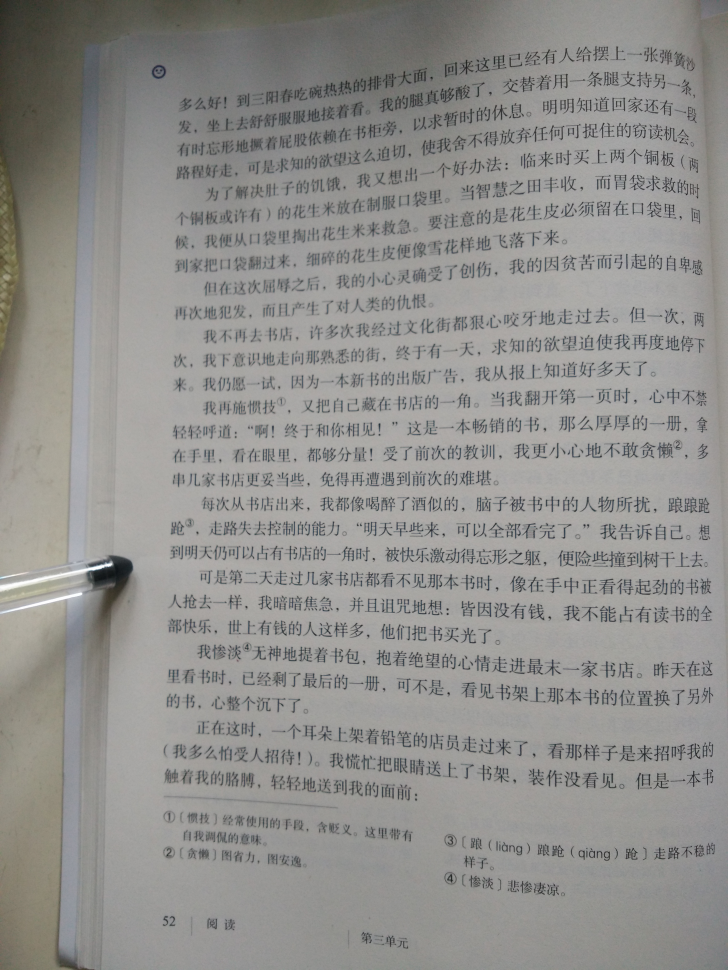 多么好！到三阳春吃碗热热的排骨大面，回来这里已经有人给摆上一张弹簧沙
发，坐上去舒舒服服地接着看。我的腿真够酸了，交替着用一条腿支持另一条，
有时忘形地撅着屁股依赖在书柜旁，以求暂时的休息。明明知道回家还有一段
路程好走，可是求知的欲望这么迫切，使我舍不得放弃任何可捉住的窃读机会。
为了解决肚子的饥饿，我又想出一个好办法：临来时买上两个铜板（两
个铜板或许有）的花生米放在制服口袋里。当智慧之田丰收，而胃袋求救的时
候，我便从口袋里掏出花生米来救急。要注意的是花生皮必须留在口袋里，回
到家把口袋翻过来，细碎的花生皮便像雪花样地飞落下来。
但在这次屈辱之后，我的小心灵确受了创伤，我的因贫苦而引起的自卑感
再次地犯发，而且产生了对人类的仇恨。
我不再去书店，许多次我经过文化街都狠心咬牙地走过去。但一次，两
次，我下意识地走向那熟悉的街，终于有一天，求知的欲望迫使我再度地停下
来。我仍愿一试，因为一本新书的出版广告，我从报上知道好多天了。
我再施惯技①，又把自己藏在书店的一角。当我翻开第一页时，心中不禁
轻轻呼道：“啊！终于和你相见！”这是一本畅销的书，那么厚厚的一册，拿
在手里，看在眼里，都够分量！受了前次的教训，我更小心地不敢贪懒②，多
串几家书店更妥当些，免得再遭遇到前次的难堪。
每次从书店出来，我都像喝醉了酒似的，脑子被书中的人物所扰，踉踉跄
跄③，走路失去控制的能力。“明天早些来，可以全部看完了。”我告诉自己。想
到明天仍可以占有书店的一角时，被快乐激动得忘形之躯，便险些撞到树干上去。
可是第二天走过几家书店都看不见那本书时，像在手中正看得起劲的书被
人抢去一样，我暗暗焦急，并且诅咒地想：皆因没有钱，我不能占有读书的全
部快乐，世上有钱的人这样多，他们把书买光了。
我惨淡④无神地提着书包，抱着绝望的心情走进最末一家书店。昨天在这
里看书时，已经剩了最后的一册，可不是，看见书架上那本书的位置换了另外
的书，心整个沉下了。
正在这时，一个耳朵上架着铅笔的店员走过来了，看那样子是来招呼我的
（我多么怕受人招待！）。我慌忙把眼睛送上了书架，装作没看见。但是一本书
触着我的胳膊，轻轻地送到我的面前：
①〔惯技〕经常使用的手段，含贬义。这里带有
自我调侃的意味。
②〔贪懒〕图省力，图安逸。
③〔踉（liàng）踉跄（qiàng）跄〕走路不稳的
样子。
④〔惨淡〕悲惨凄凉。
52 阅读
第三单元